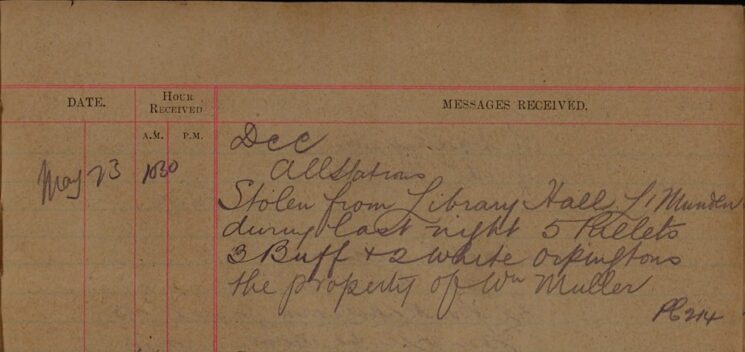 DATE. HOUR RECEIVED MESSAGES RECEIVED.
A.M. P.M.
May 23 1030 DCC
All Stations
Stolen from Library Hall Lt Munden
during last night 5 Pullets
3 Buff + 2 White Orpingtons
the property of Wm Muller
PC 214